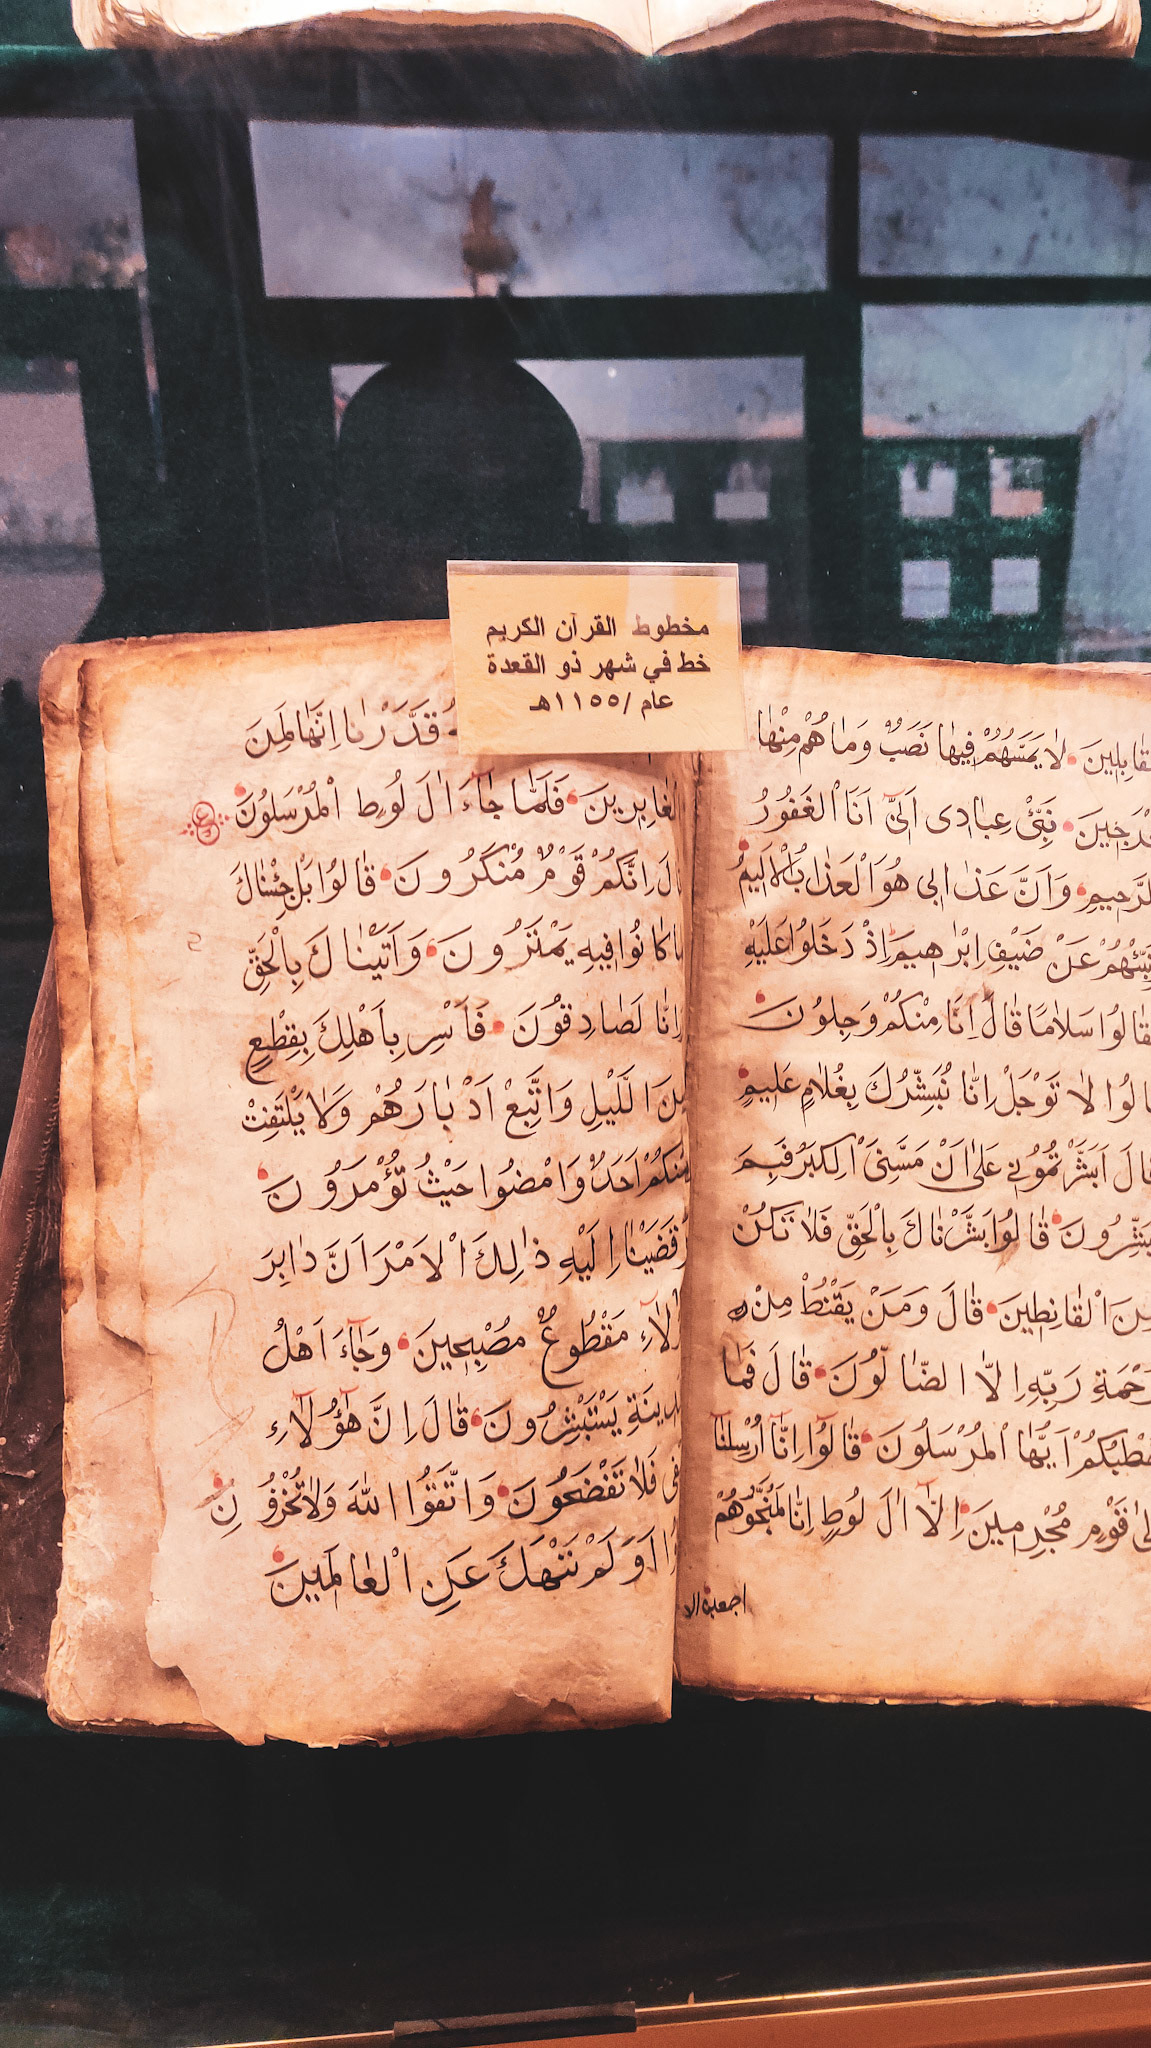 مخطوط القرآن الكريم
خط في شهر ذو القعدة
عام /١١٥٥هـ
لَا يَمَسُّهُمْ فِيهَا نَصَبٌ وَمَا هُمْ مِنْهَا
نَبِّئْ عِبَادِى اَنِّى اَنَا الْغَفُورُ
الرَّحِيمِ وَاَنَّ عَذَابِى هُوَ الْعَذَابُ الْاَلِيمُ
عَنْ ضَيْفِ اِبْرَاهِيمَ اِذْ دَخَلُوا عَلَيْهِ
فَقَالُوا سَلَامًا قَالَ اِنَّا مِنْكُمْ وَجِلُونَ
قَالُوا لَا تَوْجَلْ اِنَّا نُبَشِّرُكَ بِغُلَامٍ عَلِيمٍ
قَالَ اَبَشَّرْتُمُونِى عَلَى اَنْ مَسَّنِىَ الْكِبَرُ فَبِمَ
تُبَشِّرُونَ قَالُوا بَشَّرْنَاكَ بِالْحَقِّ فَلَا تَكُنْ
مِنَ الْقَانِطِينَ قَالَ وَمَنْ يَقْنَطُ مِنْ
رَحْمَةِ رَبِّهِ اِلَّا الضَّالُّونَ قَالَ فَمَا
خَطْبُكُمْ اَيُّهَا الْمُرْسَلُونَ قَالُوا اِنَّا اُرْسِلْنَا
قَوْمٍ مُجْرِمِينَ اِلَّا اٰلَ لُوطٍ اِنَّا لَمُنَجُّوهُمْ
اجمعين الا
قَدَّرْنَا اِنَّهَا لَمِنَ
الْغَابِرِينَ فَلَمَّا جَاءَ اٰلَ لُوطٍ الْمُرْسَلُونَ
قَالَ اِنَّكُمْ قَوْمٌ مُنْكَرُونَ قَالُوا بَلْ جِئْنَاكَ
بِمَا كَانُوا فِيهِ يَمْتَرُونَ وَاَتَيْنَاكَ بِالْحَقِّ
اِنَّا لَصَادِقُونَ فَاَسْرِ بِاَهْلِكَ بِقِطْعٍ
مِنَ الَّيْلِ وَاتَّبِعْ اَدْبَارَهُمْ وَلَا يَلْتَفِتْ
مِنْكُمْ اَحَدٌ وَامْضُوا حَيْثُ تُؤْمَرُونَ
وَقَضَيْنَا اِلَيْهِ ذَالِكَ الْاَمْرَ اَنَّ دَابِرَ
مَقْطُوعٌ مُصْبِحِينَ وَجَاءَ اَهْلُ
يَسْتَبْشِرُونَ قَالَ اِنَّ هٰؤُلَاءِ
فَلَا تَفْضَحُونَ وَاتَّقُوا اللّٰهَ وَلَا تُخْزُونِ
اَوَ لَمْ نَنْهَكَ عَنِ الْعَالَمِينَ